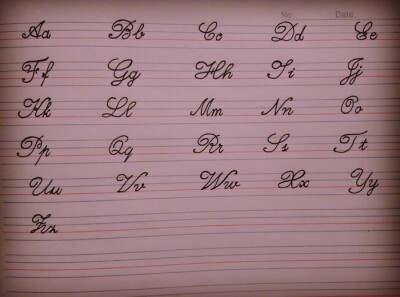 No. Date.
Aa Bb Cc Dd Ee
Ff Gg Hh Ii Jj
Kk Ll Mm Nn Oo
Pp Qq Rr Ss Tt
Uu Vv Ww Xx Yy
Zz